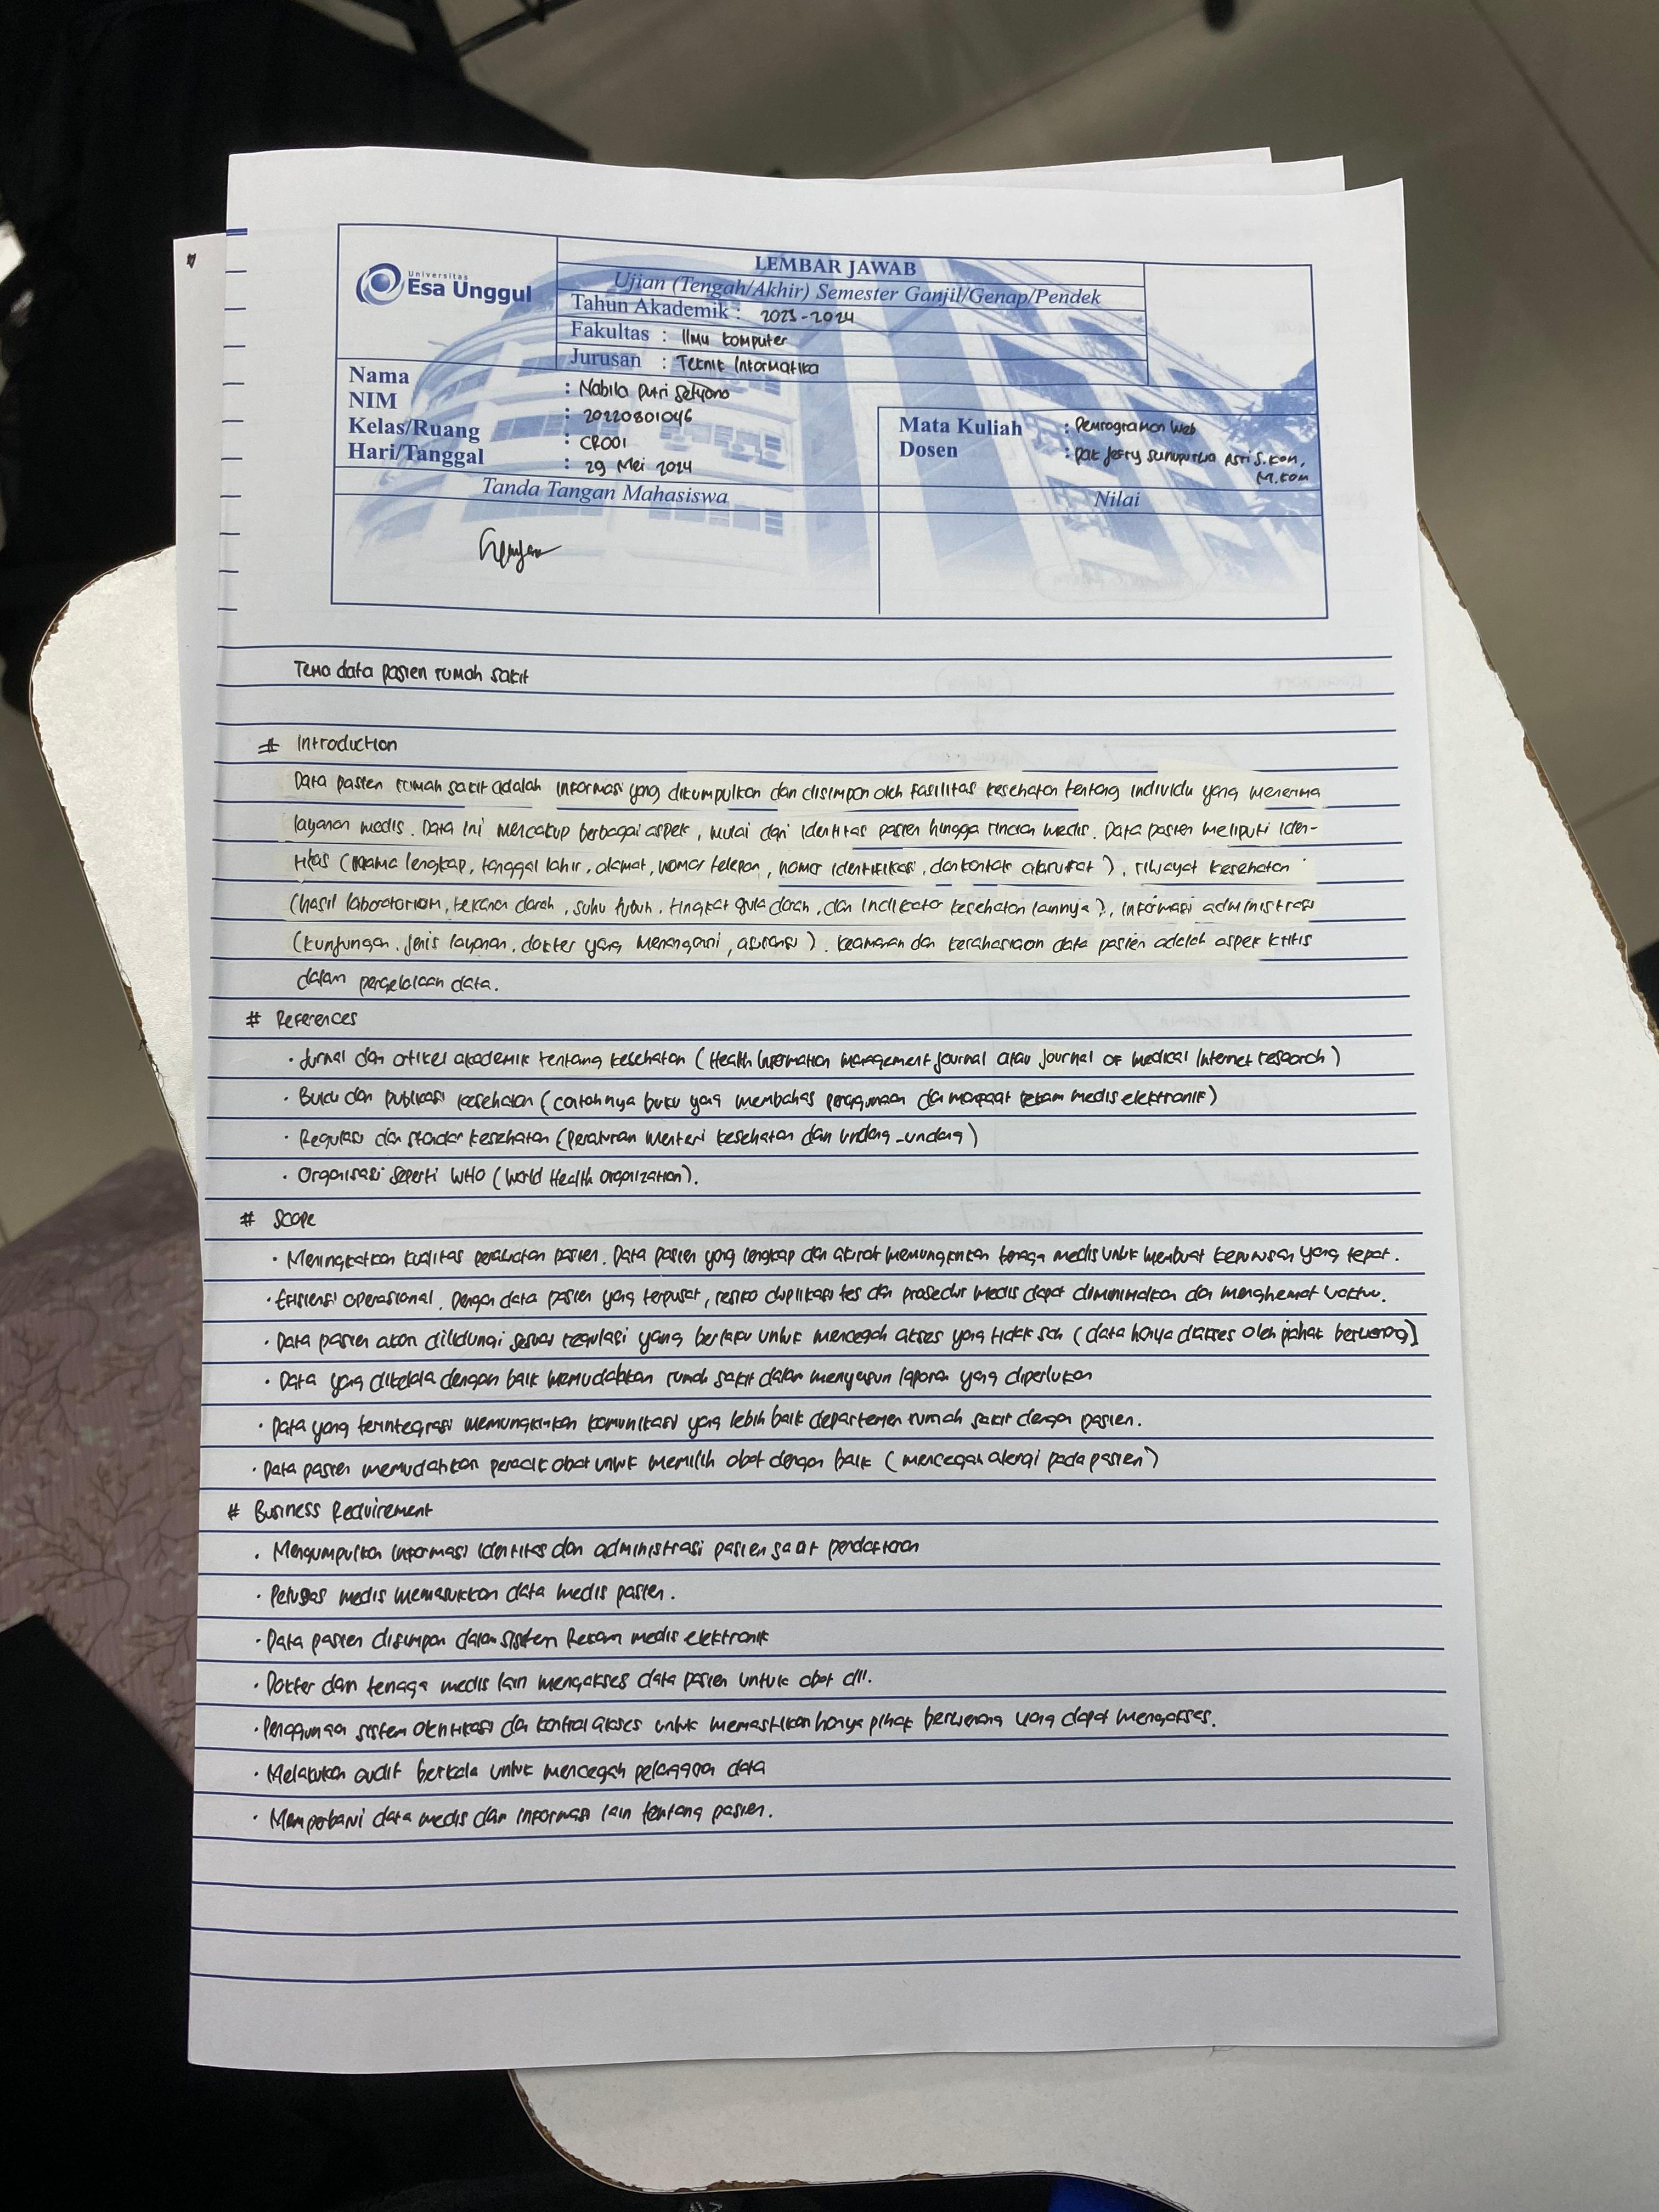 Universitas
Esa Unggul
LEMBAR JAWAB
Ujian (Tengah/Akhir) Semester Ganjil/Genap/Pendek
Tahun Akademik : 2023-2024
Fakultas : Ilmu Komputer
Jurusan : Teknik Informatika
Nama : Nabila Putri Setyono
NIM : 20220801046
Kelas/Ruang : CR001
Hari/Tanggal : 29 Mei 2024
Mata Kuliah : Pemrograman Web
Dosen : Pak Jefry S.Kom,
M.Kom
Tanda Tangan Mahasiswa
Nilai
Tema data pasien rumah sakit
# Introduction
Data pasien rumah sakit adalah informasi yang dikumpulkan dan disimpan oleh fasilitas kesehatan tentang individu yang menerima
layanan medis. Data ini mencakup berbagai aspek, mulai dari identitas pasien hingga rincian medis. Data pasien meliputi iden-
titas (nama lengkap, tanggal lahir, alamat, nomor telepon, nomor identifikasi, dan kontak darurat), riwayat kesehatan
(hasil laboratorium, tekanan darah, suhu tubuh, tingkat gula darah, dan indikator kesehatan lainnya), informasi administrasi
(kunjungan, jenis layanan, dokter yang menangani, asuransi). Keamanan dan kerahasiaan data pasien adalah aspek kritis
dalam pengelolaan data.
# References
• Jurnal dan artikel akademik tentang kesehatan (Health Information Management Journal atau Journal of Medical Internet research)
• Buku dan publikasi kesehatan (contohnya buku yang membahas penggunaan dan manfaat rekam medis elektronik)
• Regulasi dan standar kesehatan (Peraturan Menteri kesehatan dan undang-undang)
• Organisasi seperti WHO (World Health Organization).
# Scope
• Meningkatkan kualitas perawatan pasien. Data pasien yang lengkap dan akurat memungkinkan tenaga medis untuk membuat keputusan yang tepat.
• Efisiensi operasional. Dengan data pasien yang terpusat, resiko duplikasi tes dan prosedur medis dapat diminimalkan dan menghemat waktu.
• Data pasien akan dilidungi sesuai regulasi yang berlaku untuk mencegah akses yang tidak sah (data hanya diakses oleh pihak berwenang)
• Data yang dikelola dengan baik memudahkan rumah sakit dalam menyusun laporan yang diperlukan
• Data yang terintegrasi memungkinkan komunikasi yang lebih baik departemen rumah sakit dengan pasien.
• Data pasien memudahkan peracik obat untuk memilih obat dengan baik (mencegah alergi pada pasien)
# Business Requirement
• Mengumpulkan informasi identitas dan administrasi pasien saat pendaftaran
• Petugas medis memasukkan data medis pasien.
• Data pasien disimpan dalam sistem Rekam medis elektronik
• Dokter dan tenaga medis lain mengakses data pasien untuk obat dll.
• Penggunaan sistem otentikasi dan kontrol akses untuk memastikan hanya pihak berwenang yang dapat mengakses.
• Melakukan audit berkala untuk mencegah pelanggaran data
• Memperbarui data medis dan informasi lain tentang pasien.